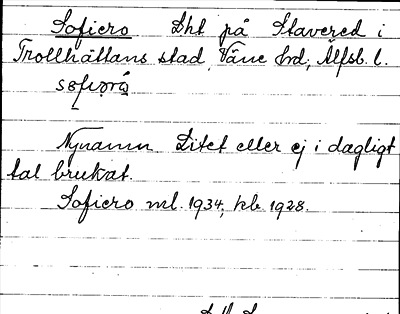 Sofiero Dht på Stavered i
Trollhättans stad, Väne hrd, Älfsb. l.
Nynamn. Litet eller ej i dagligt
tal brukat.
Sofiero ml. 1934, kb 1928.